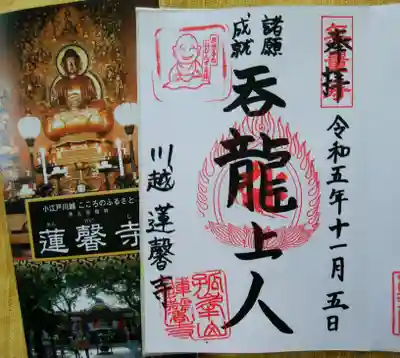 小江戸川越 こころのふるさと
蓮馨寺
奉拝
令和五年十一月五日
諸願
成就
呑龍上人
川越 蓮馨寺
孤峯山
蓮馨寺